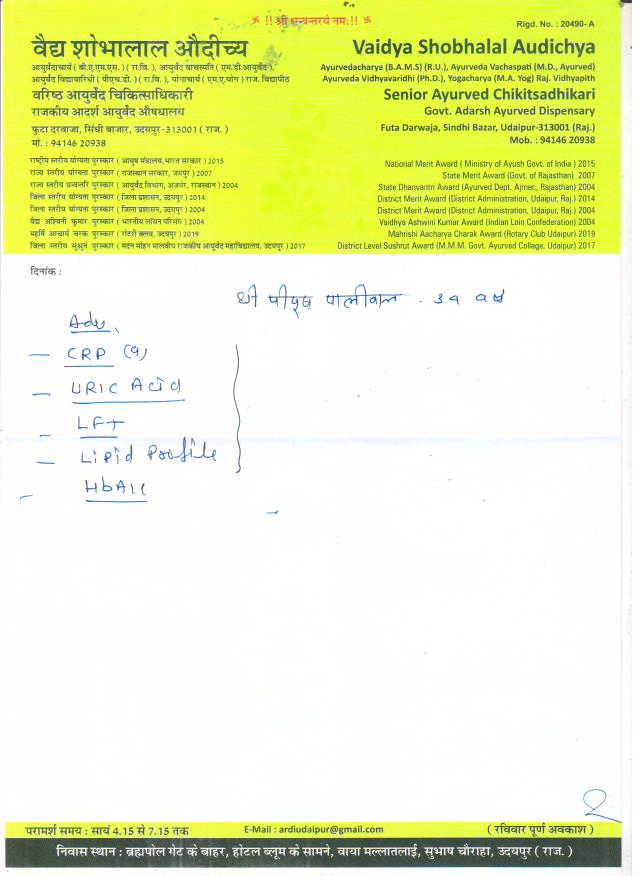 卐 !! श्री धन्वन्तरये नमः!! 卐
Rigd. No. : 20490- A
वैद्य शोभालाल औदीच्य
Vaidya Shobhalal Audichya
आयुर्वेदाचार्य ( बी.ए.एम.एस. ) ( रा.वि. ), आयुर्वेद वाचस्पति ( एम.डी.आयुर्वेद ),
Ayurvedacharya (B.A.M.S) (R.U.), Ayurveda Vachaspati (M.D., Ayurved)
आयुर्वेद विद्यावारिधी ( पीएच.डी. ) ( रा.वि. ), योगाचार्य ( एम.ए.योग ) राज. विद्यापीठ
Ayurveda Vidhyavaridhi (Ph.D.), Yogacharya (M.A. Yog) Raj. Vidhyapith
वरिष्ठ आयुर्वेद चिकित्साधिकारी
Senior Ayurved Chikitsadhikari
राजकीय आदर्श आयुर्वेद औषधालय
Govt. Adarsh Ayurved Dispensary
फुटा दरवाजा, सिंधी बाजार, उदयपुर-313001 ( राज. )
Futa Darwaja, Sindhi Bazar, Udaipur-313001 (Raj.)
मो. : 94146 20938
Mob. : 94146 20938
राष्ट्रीय स्तरीय योग्यता पुरस्कार ( आयुष मंत्रालय,भारत सरकार ) 2015
National Merit Award ( Ministry of Ayush Govt. of India ) 2015
राज्य स्तरीय योग्यता पुरस्कार ( राजस्थान सरकार, जयपुर ) 2007
State Merit Award (Govt. of Rajasthan) 2007
राज्य स्तरीय धन्वन्तरि पुरस्कार ( आयुर्वेद विभाग, अजमेर, राजस्थान ) 2004
State Dhanvantri Award (Ayurved Dept. Ajmer., Rajasthan) 2004
जिला स्तरीय योग्यता पुरस्कार ( जिला प्रशासन, उदयपुर ) 2014
District Merit Award (District Administration, Udaipur, Raj.) 2014
जिला स्तरीय योग्यता पुरस्कार ( जिला प्रशासन, उदयपुर ) 2004
District Merit Award (District Administration, Udaipur, Raj.) 2004
वैद्य अश्विनी कुमार पुरस्कार ( भारतीय लॉयन परिसंघ ) 2004
Vaidhya Ashwini Kumar Award (Indian Loin Confederation) 2004
महर्षि आचार्य चरक पुरस्कार ( रोटरी क्लब, उदयपुर ) 2019
Mahrishi Aacharya Charak Award (Rotary Club Udaipur) 2019
जिला स्तरीय सुश्रुत पुरस्कार ( मदन मोहन मालवीय राजकीय आयुर्वेद महाविद्यालय, उदयपुर ) 2017
District Level Sushrut Award (M.M.M. Govt. Ayurved Collage, Udaipur) 2017
दिनांक :
श्री पीयूष पालीवाल
Adv.
– CRP
– URIC Acid
– LFT
– Lipid Profile
– HbA1c
परामर्श समय : सायं 4.15 से 7.15 तक
E-Mail : ardiudaipur@gmail.com
( रविवार पूर्ण अवकाश )
निवास स्थान : ब्रह्मपोल गेट के बाहर, होटल ब्लूम के सामने, वाया मल्लातलाई, सुभाष चौराहा, उदयपुर ( राज. )